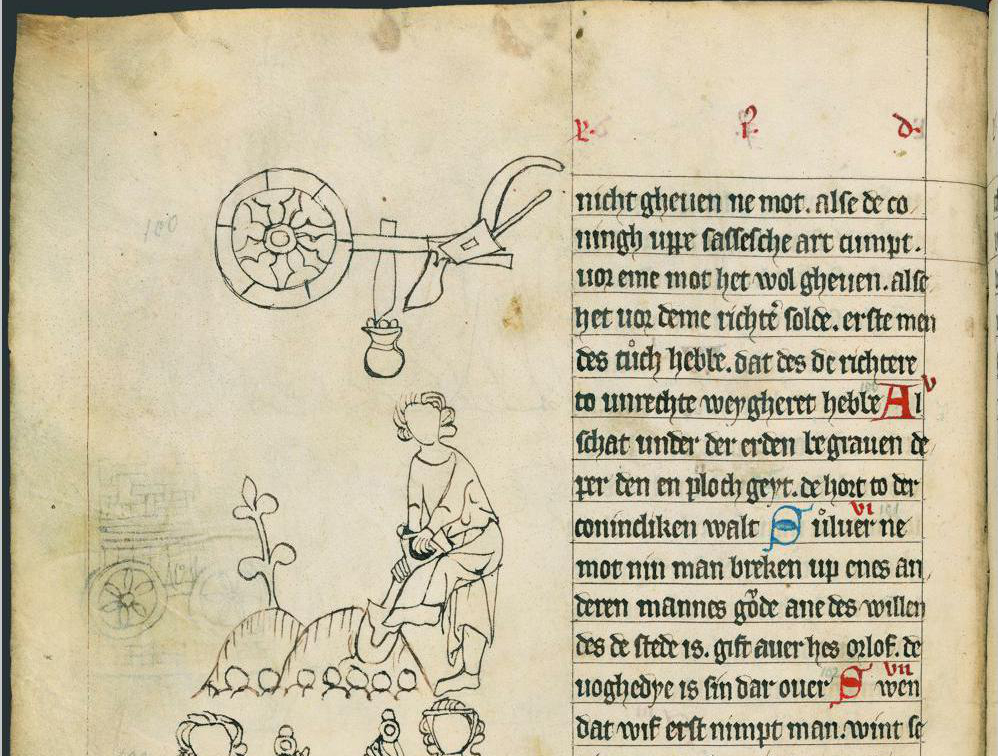 nicht gheuen ne mot. alse de co
ningh uppe sassesche art cumpt.
uor eme mot het wol gheuen. alse
het uor deme richtē solde. erste men
des tůch hebbe. dat des de richtere
to unrechte weygheret hebbe Al v
schat under der erden begrauen de
per den en ploch geyt. de hort to der
coninckliken walt Sůluer ne vi
mot nin man breken up enes an
deren mannes gŏde ane des willen
des de stede is. gift auer hes orlof. de
uoghedye is sin dar ouer Swen vii
dat wif erst nimpt man. wint se